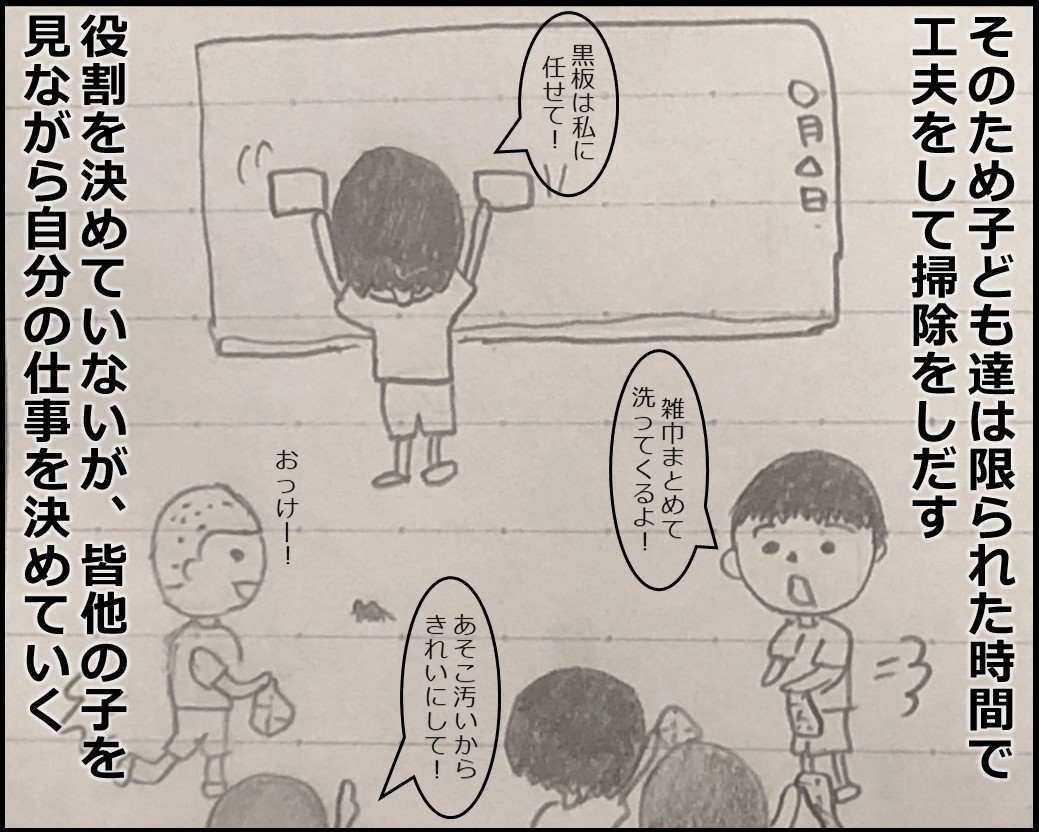 そのため子ども達は限られた時間で
工夫をして掃除をしだす
黒板は私に
任せて！
〇月△日
雑巾まとめて
洗ってくるよ！
おっけー！
あそこ汚いから
きれいにして！
役割を決めていないが、皆他の子を
見ながら自分の仕事を決めていく